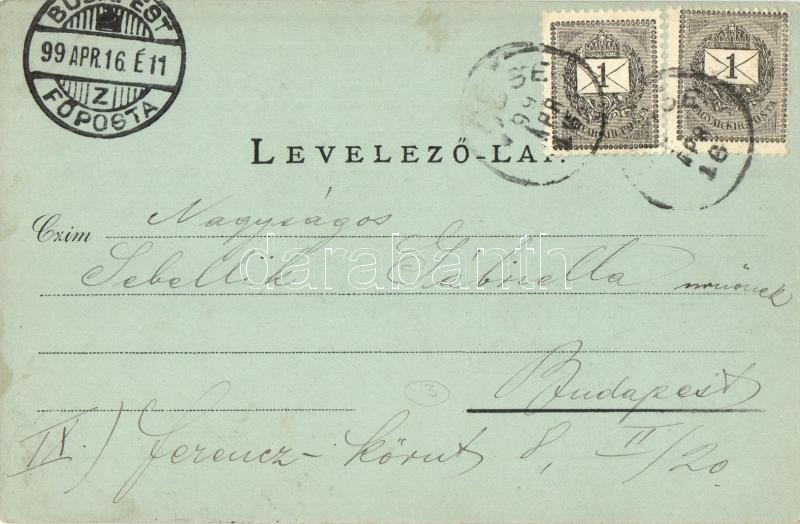 BUDAPEST
99 APR. 16. É 11
Z
FŐPOSTA
1
MAGY. KIR. POSTA
1
MAGY. KIR. POSTA
99
APR
APR
16
LEVELEZŐ-LAP.
Czim Nagyságos
Sebellik Gábriella
Budapest
3
IX.) Ferencz-körut 8, II/20
darabanth